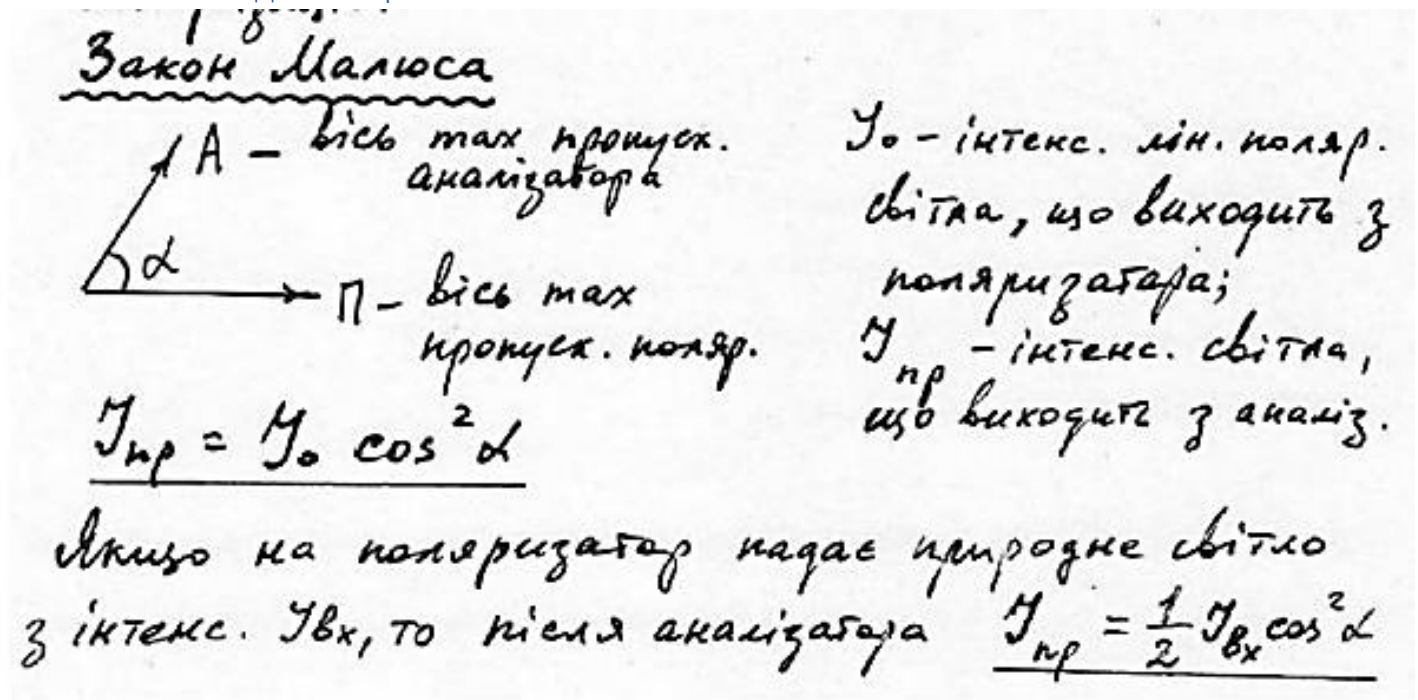 Закон Малюса
A – вісь max пропуск.
аналізатора
α
П – вісь max
пропуск. поляр.
J₀ – інтенс. лін. поляр.
світла, що виходить з
поляризатора;
Jпр – інтенс. світла,
що виходить з аналіз.
Jпр = J₀ cos²α
Якщо на поляризатор падає природне світло
з інтенс. Jвх, то після аналізатора Jпр = 1/2 Jвх cos²α